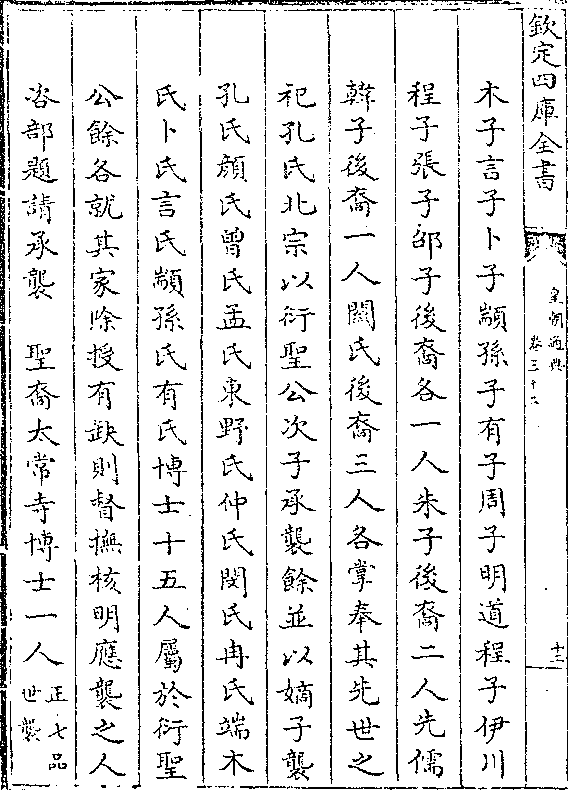 欽定四庫全書
皇朝通典
卷三十
十三
木子言子卜子顓孫子有子周子明道程子伊川
程子張子邵子後裔各一人朱子後裔二人先儒
韓子後裔一人關氏後裔三人各掌奉其先世之
祀孔氏北宗以衍聖公次子承襲餘並以嫡子襲
孔氏顔氏曾氏孟氏東野氏仲氏閔氏冉氏端木
氏卜氏言氏顓孫氏有氏博士十五人屬於衍聖
公餘各就其家除授有缺則督撫核明應襲之人
咨部題請承襲　聖裔太常寺博士一人正七品世襲